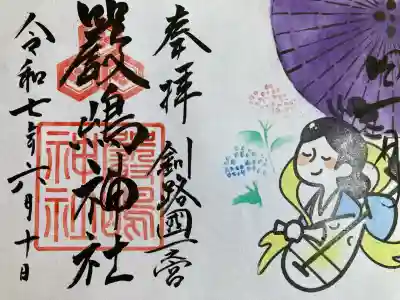 奉拝
釧路國一之宮
嚴嶋神社
嚴嶋神社
令和七年六月十日